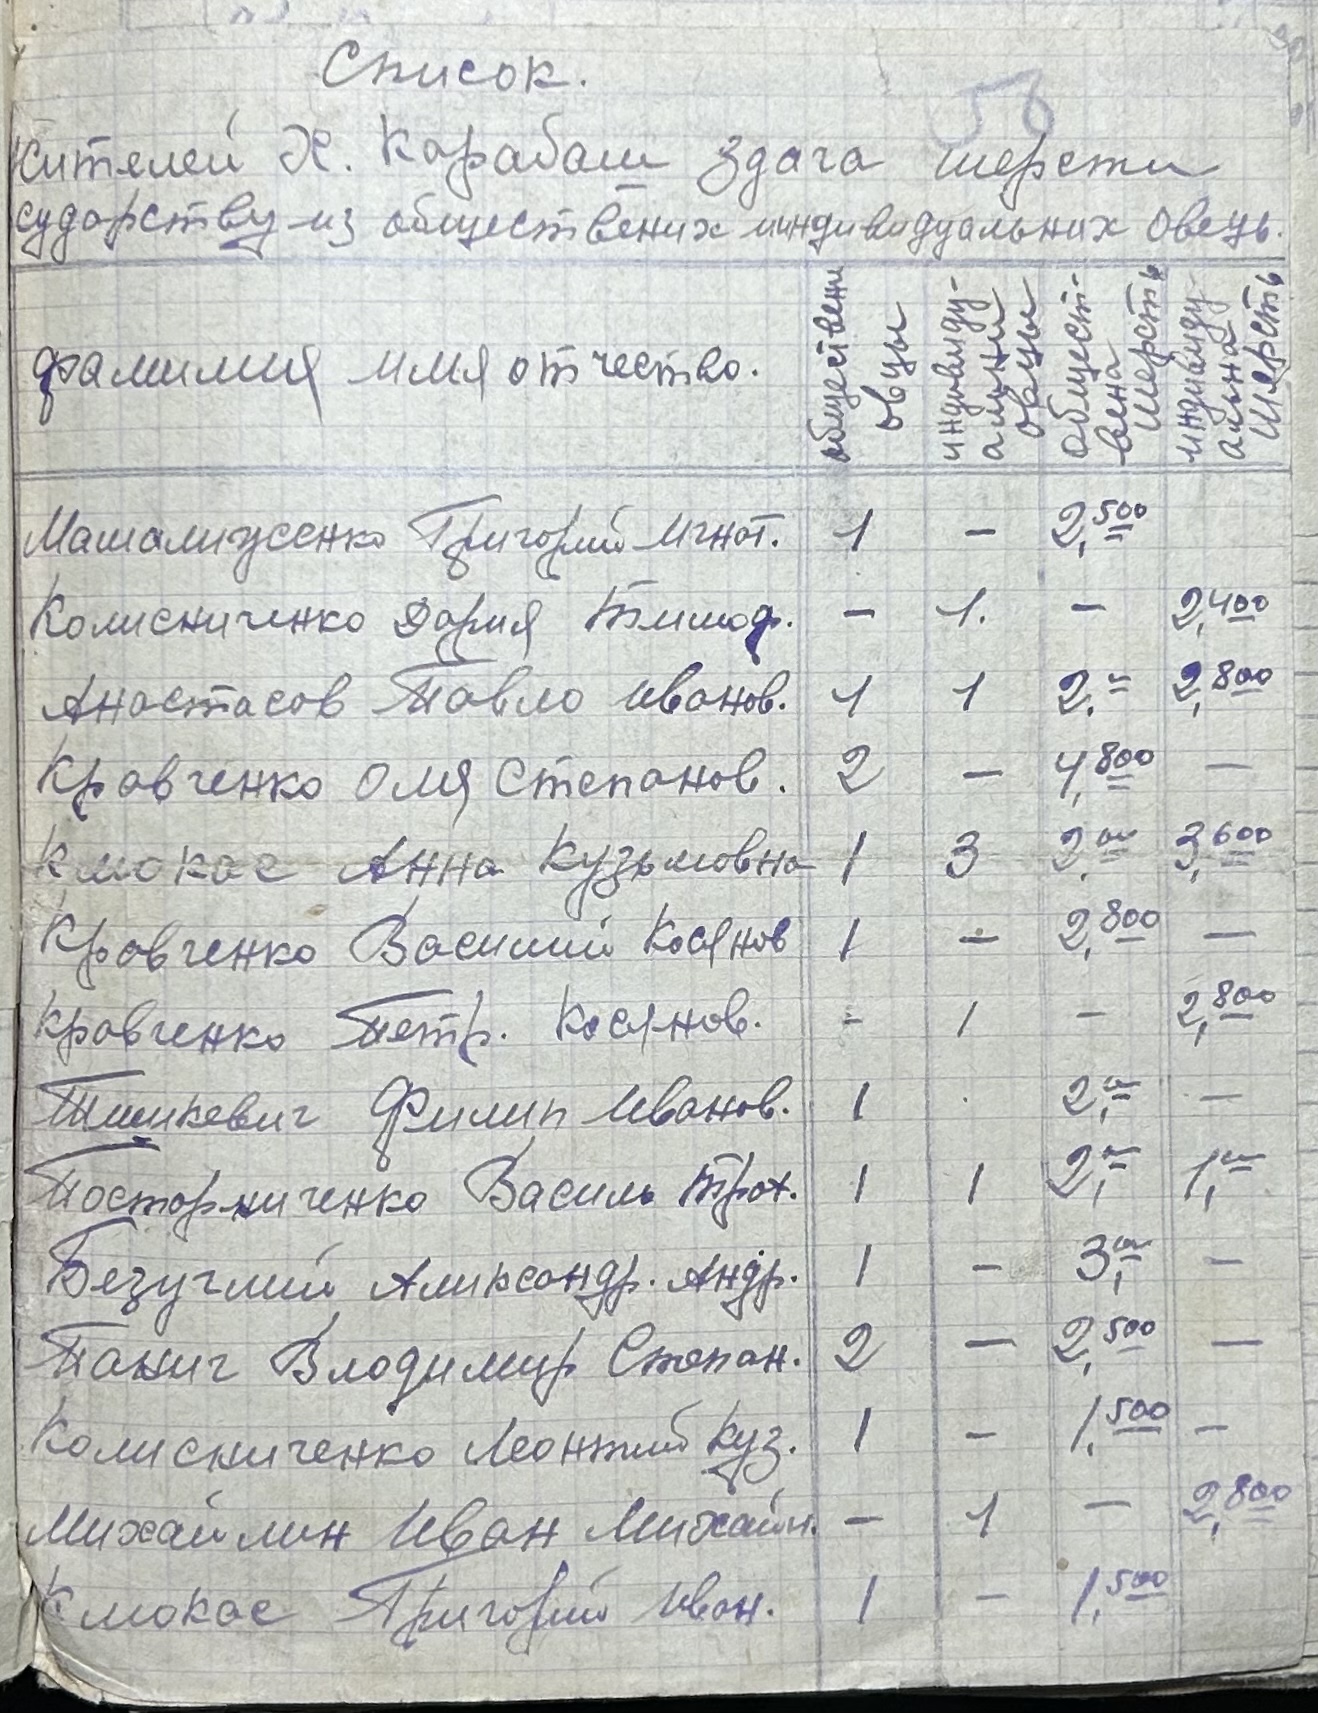 Список.
56
жителей Х. Карабаш здача шерсти
сударству из обществених индивидуальних овець.
фамилия имя отчество. обществени овцы индивиду- альнии овцы общест- вена шерсть индивиду- альна шерсть
Григорий Игнат. 1 - 2,500
Колисниченко Дария Тимоф. - 1. - 2,400
Анастасов Павло Иванов. 1 1 2.= 2,800
Кравченко Оля Степанов. 2 - 4,800 -
Клюкас Анна Кузьмовна 1 3 2,00 3,600
Кравченко Василий Касянов 1 - 2,800 -
Кравченко Петр. Касянов. - 1 - 2,800
Филип Иванов. 1 . 2,00 -
Посторниченко Василь Трох. 1 1 2,00 1,00
Безуглий Александр. Андр. 1 - 3,00 -
Панич Владимир Степан. 2 - 2,500 -
Колисниченко Леонтий Куз. 1 - 1,500 -
Михайлин Иван Михайл. - 1 - 2,800
Клюкас Григорий Иван. 1 - 1,500